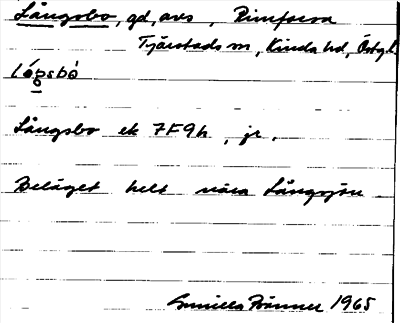 Långsbo, gd, avs, Rimforsa
Tjärstads sn, Kinda hd, Östgl.
lågsbo
Långsbo ek 7F9h, jr.
Beläget helt nära Långsjön
Gunilla 1965